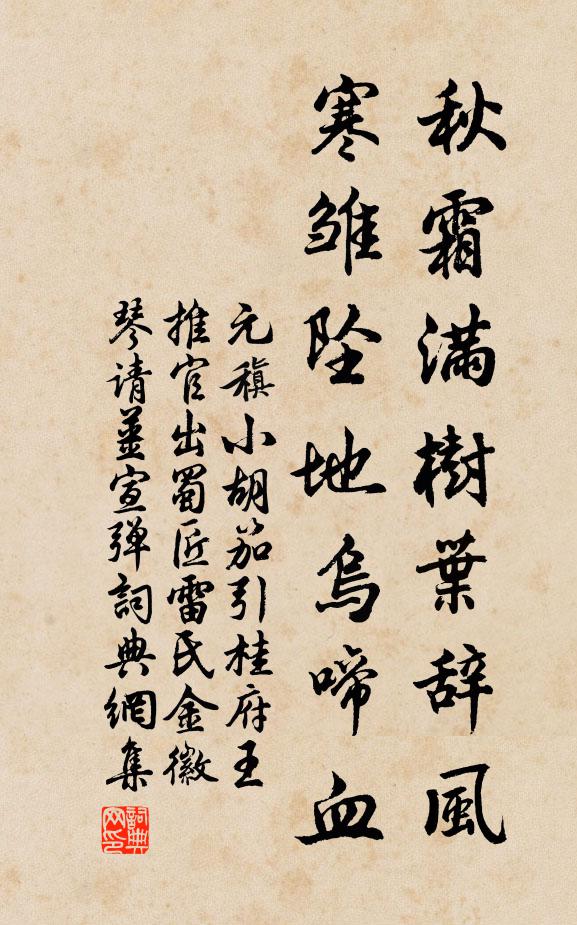 秋霜滿樹葉辞風
寒雏坠地烏啼血
元稹小胡笳引桂府王
推官出蜀匠雷氏金徽
琴请姜宣弹詞典網集
詞典网印